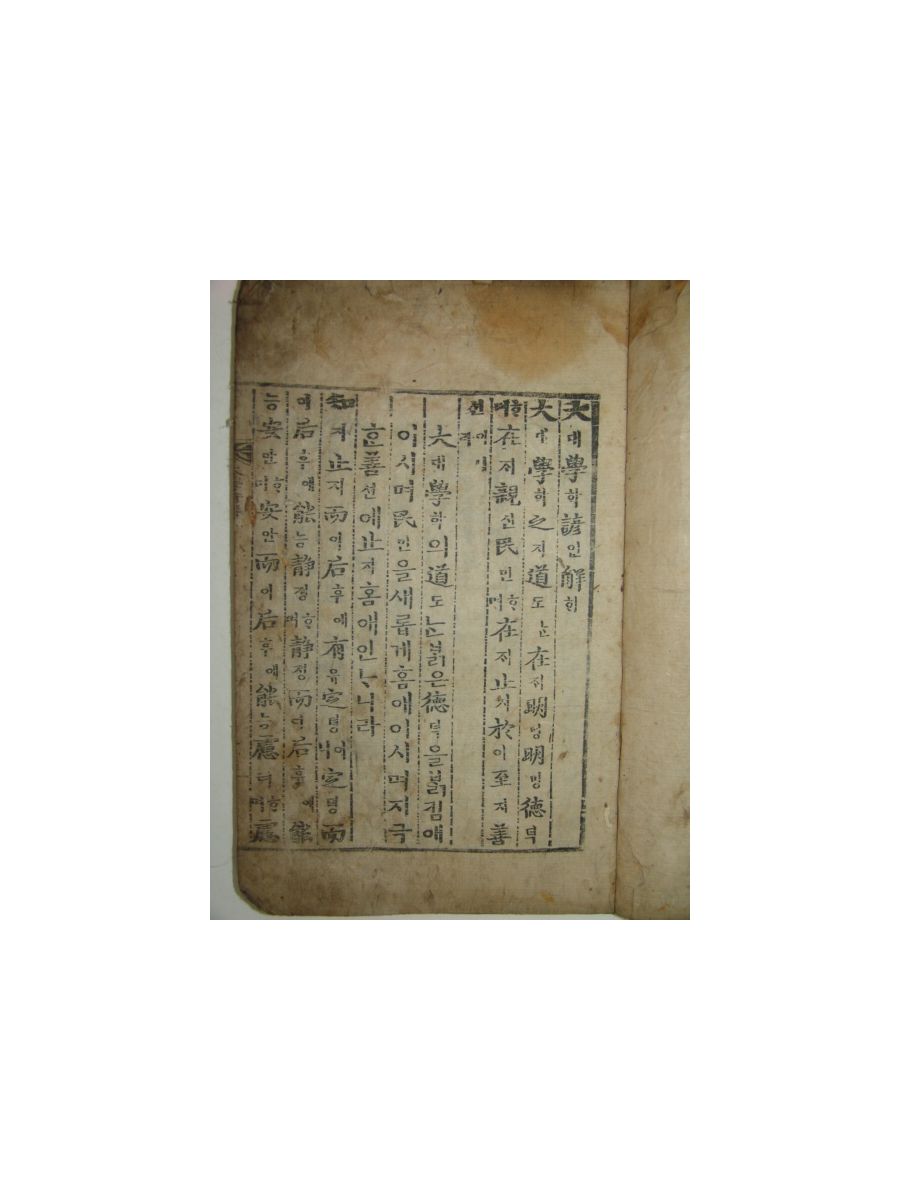 大대學학諺언解ᄒᆡ
大대學학之지道도ᄂᆞᆫ在ᄌᆡ明명明명德덕
ᄒᆞ며在ᄌᆡ親신民민ᄒᆞ며在ᄌᆡ止지於어至지善
션
大대學학의道도ᄂᆞᆫᄇᆞᆰ은德덕을ᄇᆞᆰ킴애
이시며民민을새롭게홈애이시며지극
ᄒᆞᆫ善션에止지홈애인ᄂᆞ니라
知지止지而이后후에有유定뎡이니定뎡而
이后후에能능静졍ᄒᆞ며静졍而이后후에能
능安안ᄒᆞ며安안而이后후에能능慮려ᄒᆞ며慮